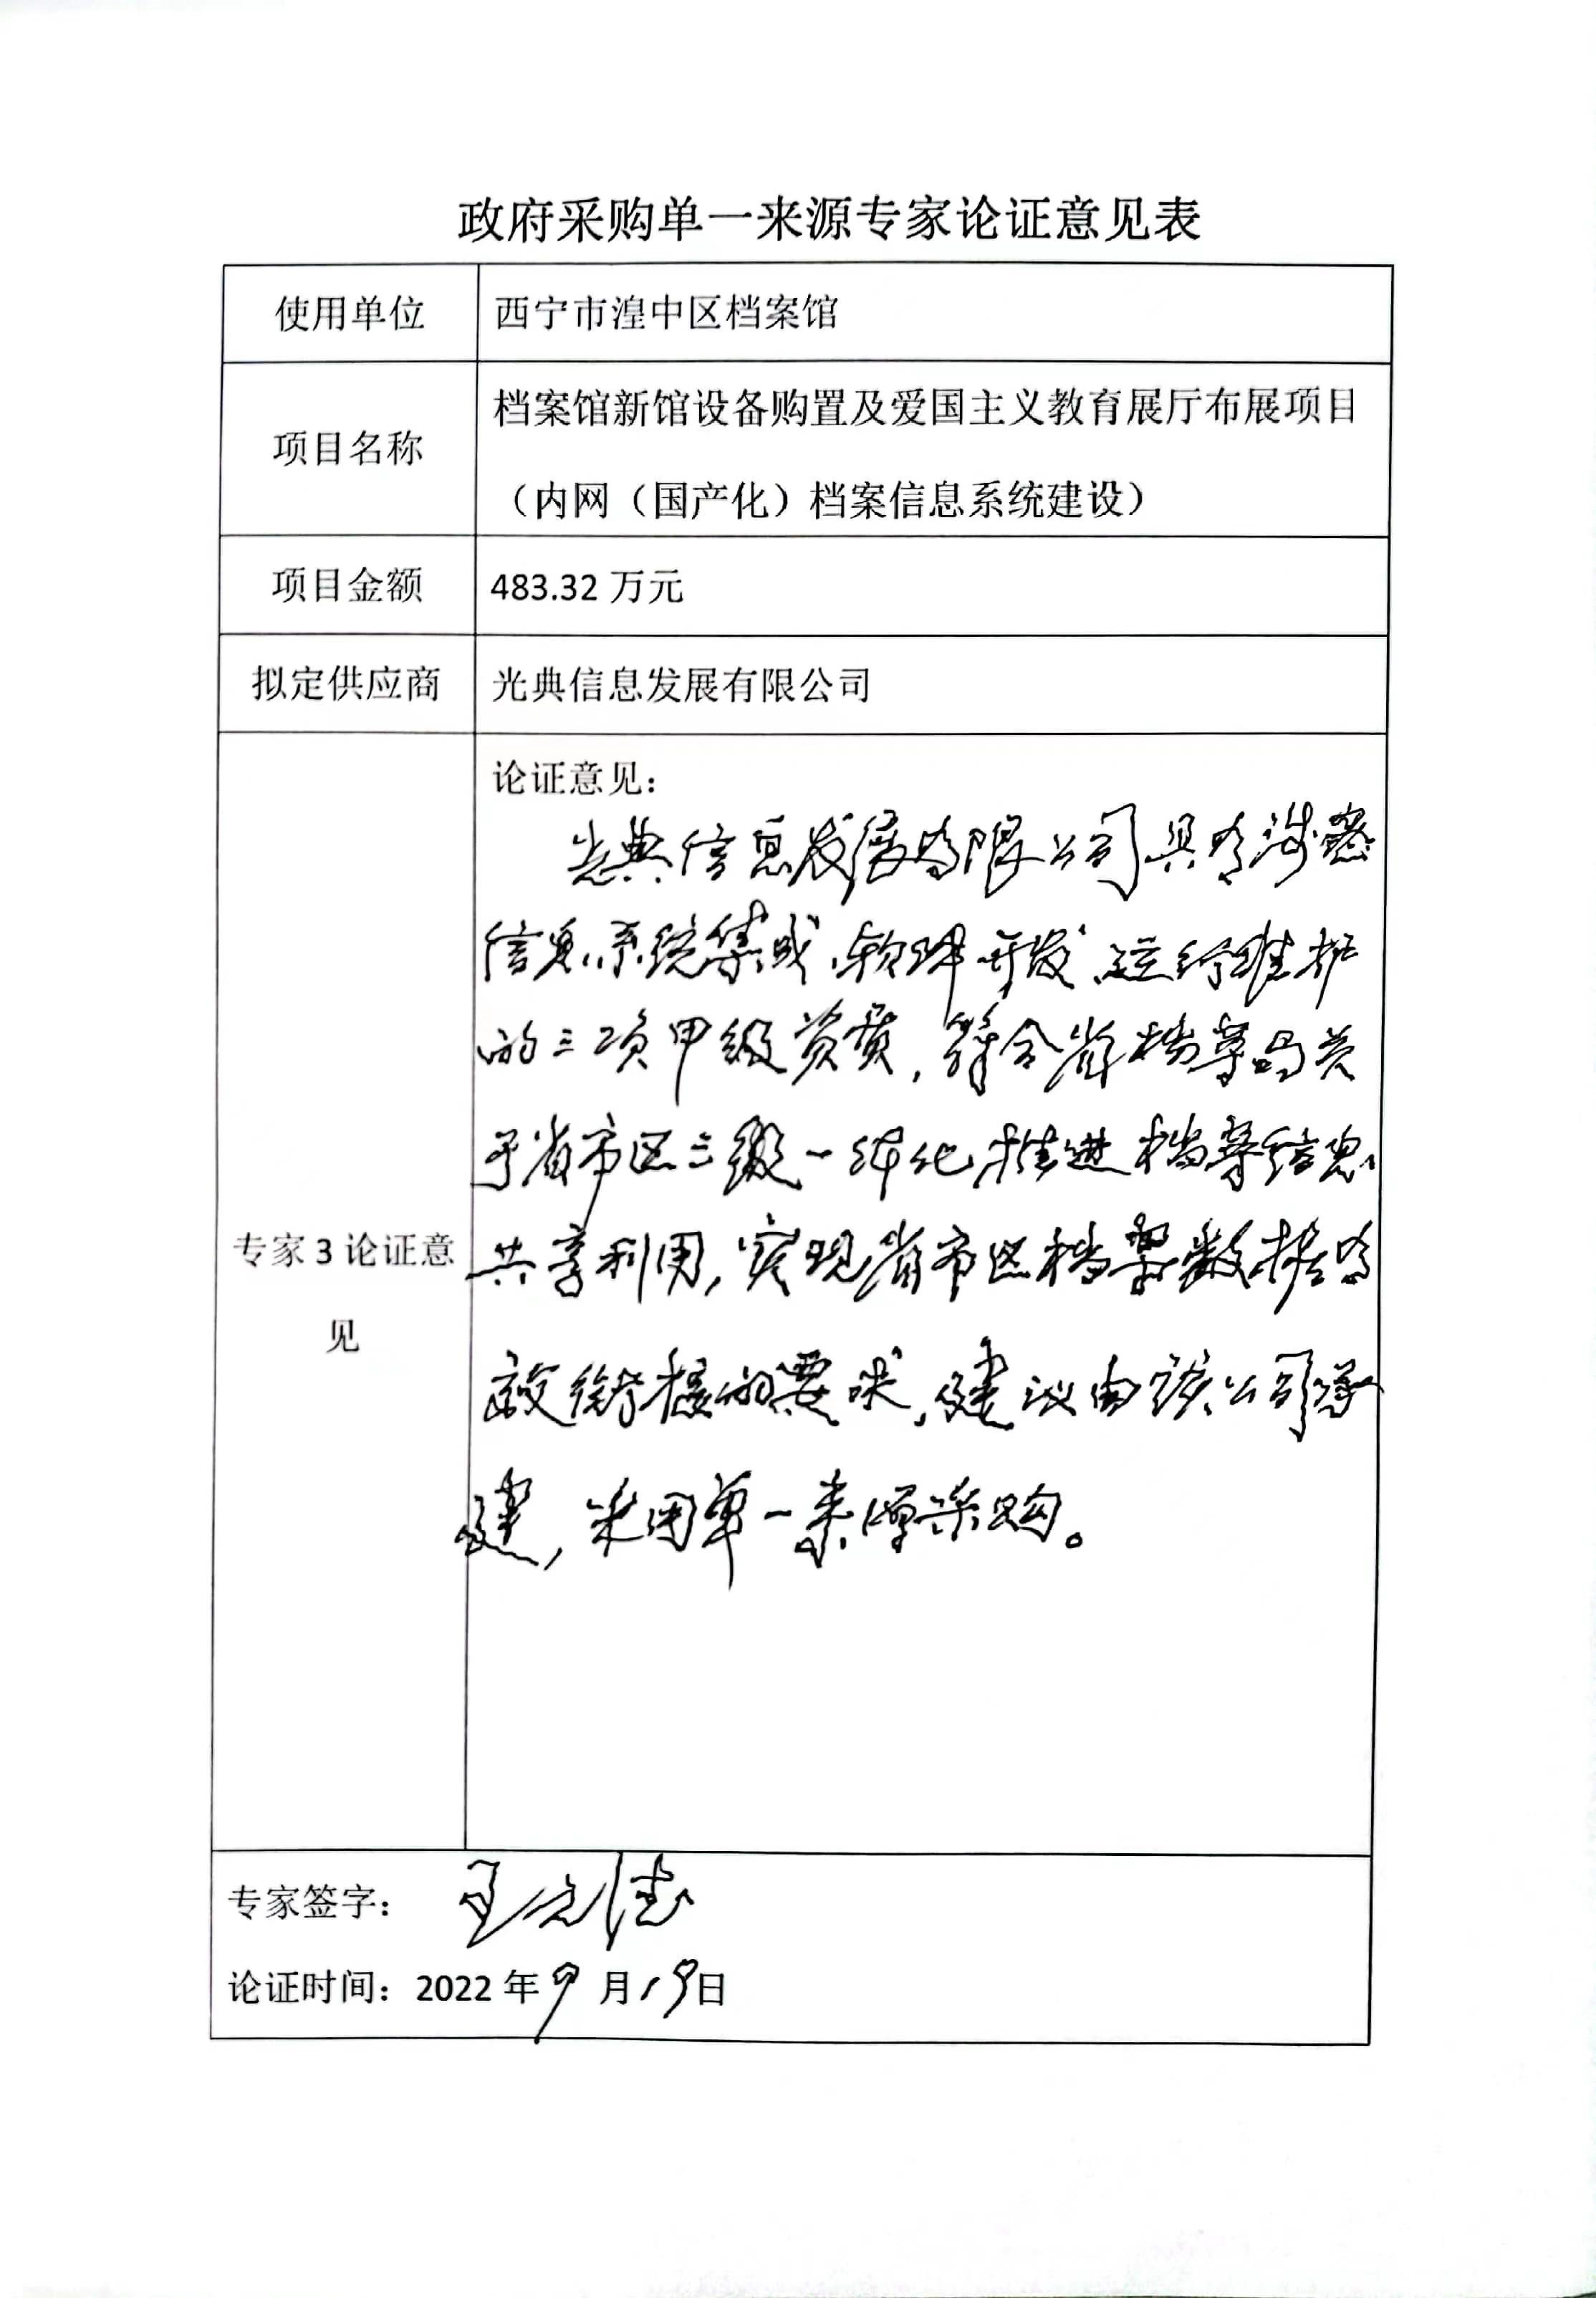 政府采购单一来源专家论证意见表
使用单位
西宁市湟中区档案馆
项目名称
档案馆新馆设备购置及爱国主义教育展厅布展项目
（内网（国产化）档案信息系统建设）
项目金额
483.32 万元
拟定供应商
光典信息发展有限公司
专家 3 论证意
见
论证意见：
光典信息发展有限公司具有涉密
信息系统集成、软件开发、运行维护
的三项甲级资质，符合省档案局关
于省市区三级一体化推进档案信息
共享利用，实现省市区档案数据有
效衔接的要求，建议由该公司承
建，采用单一来源采购。
专家签字：
论证时间：2022 年 9 月 19 日